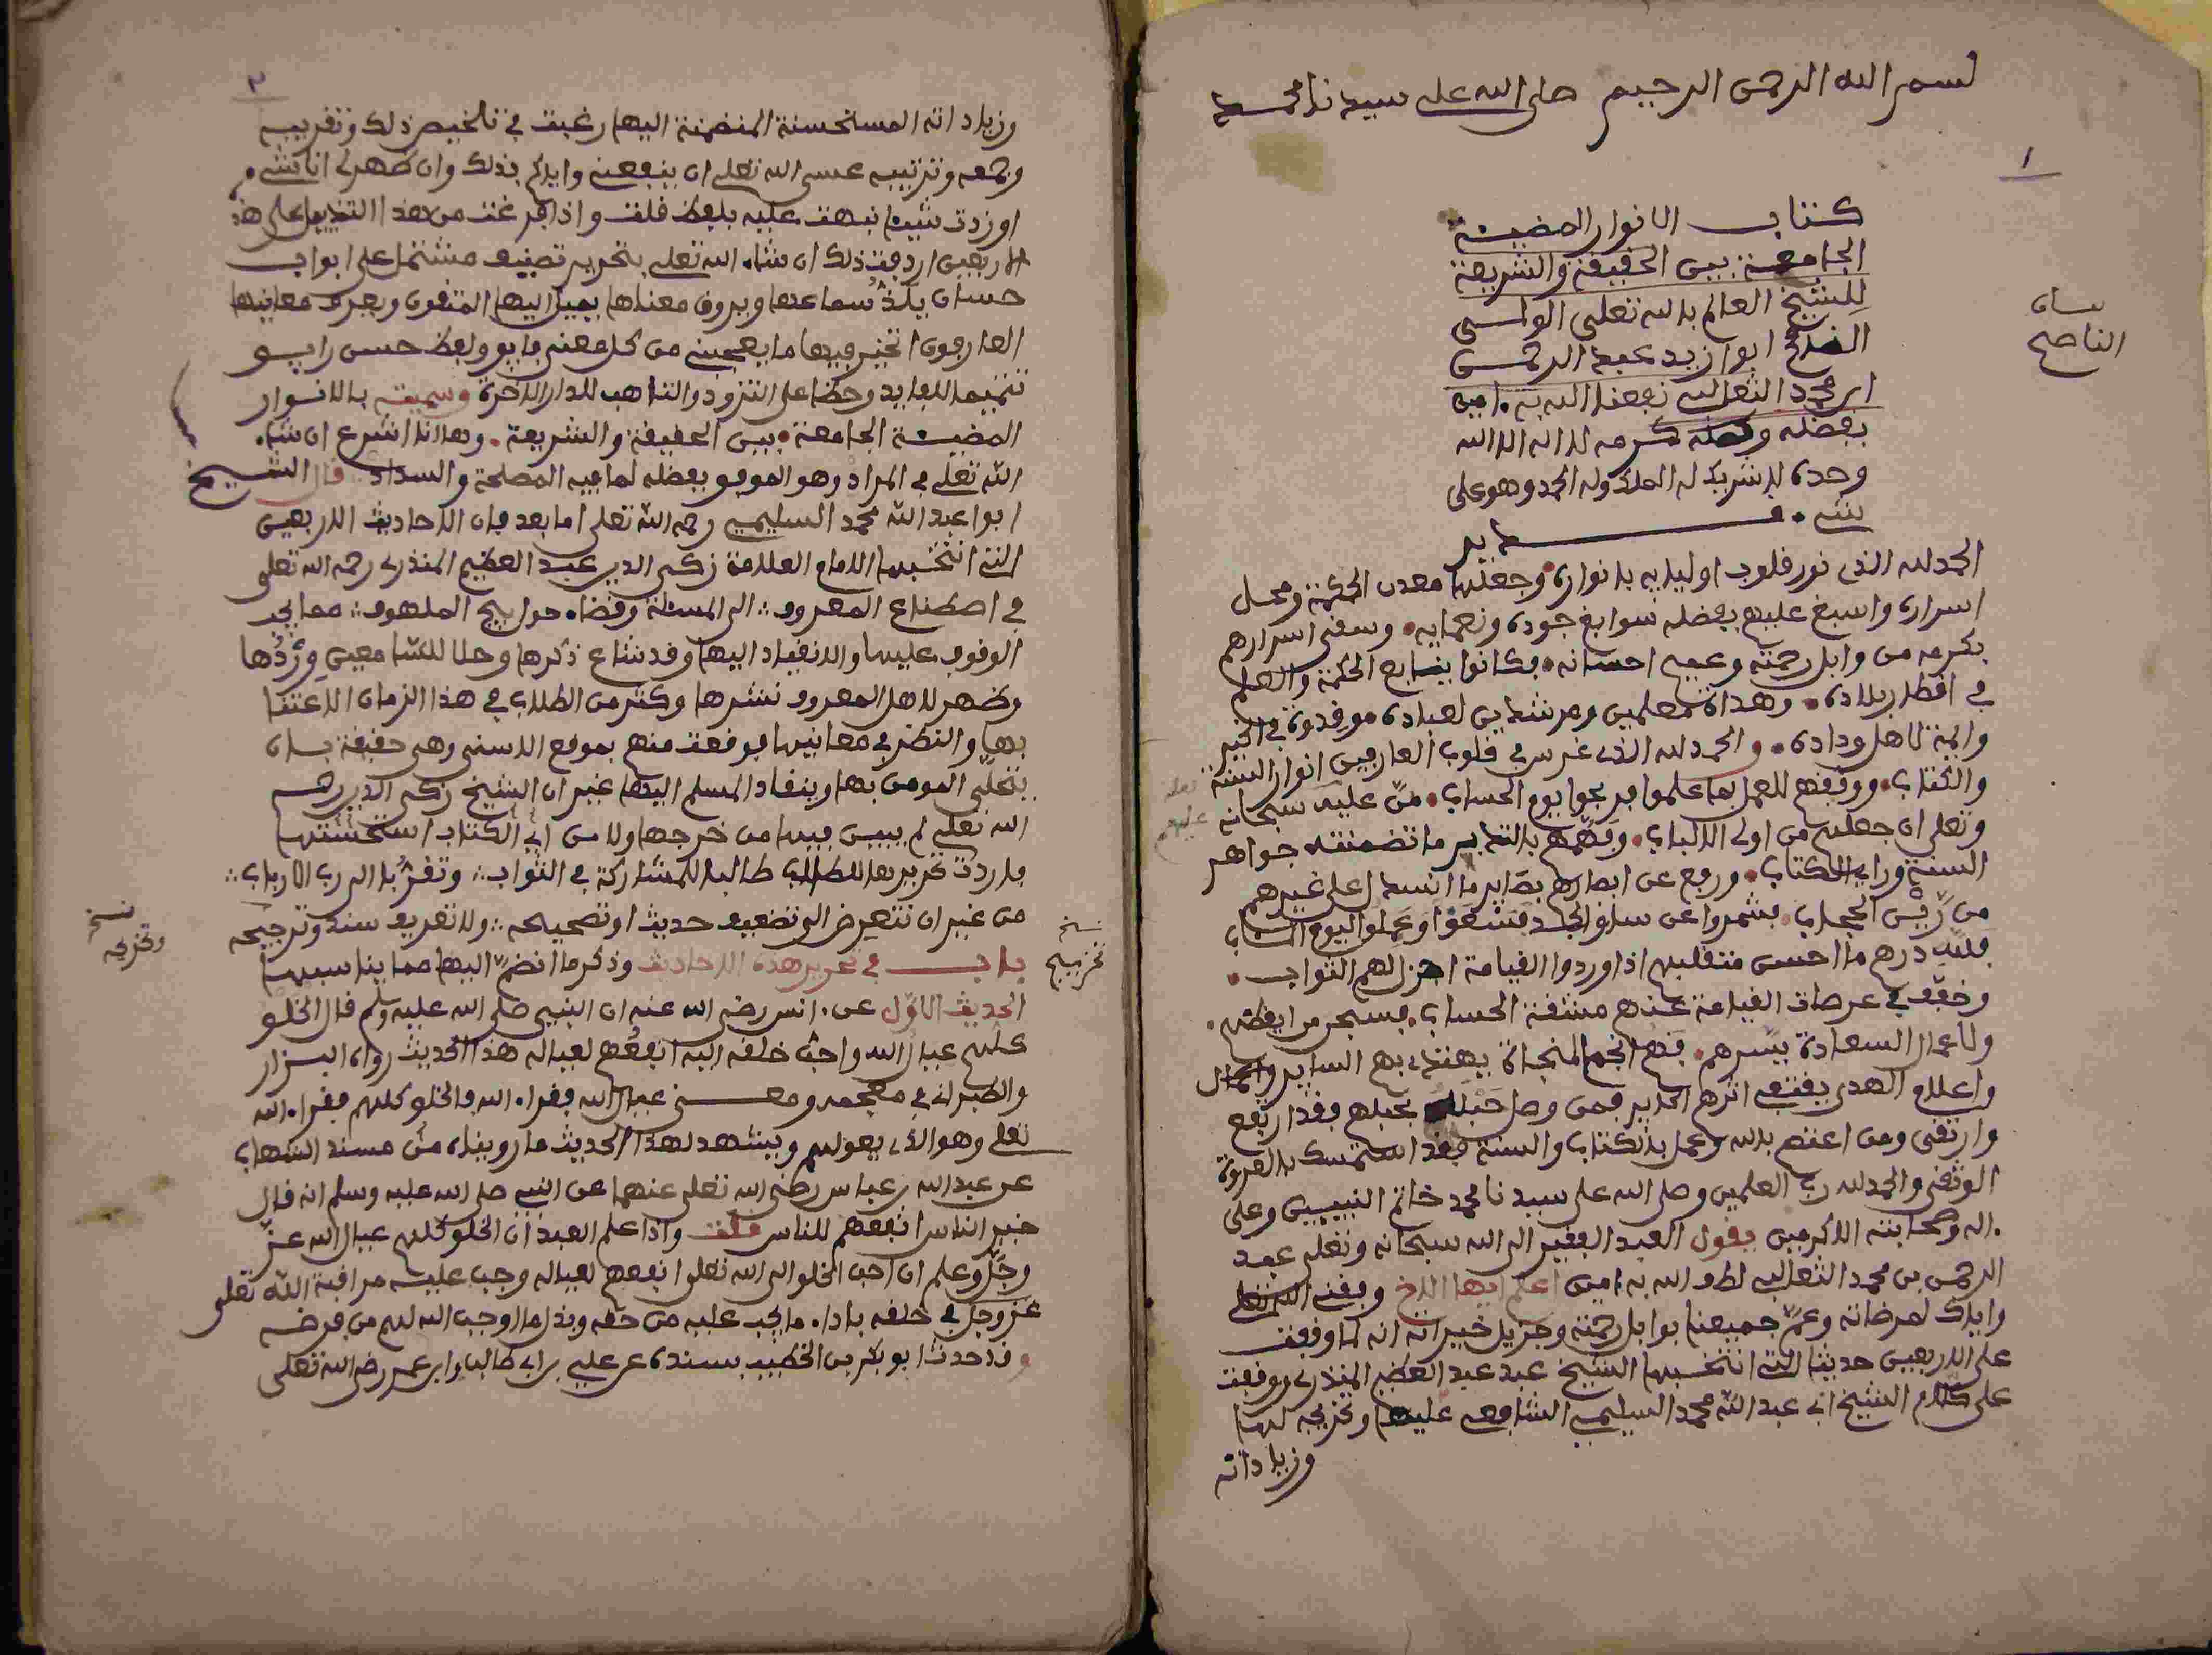 بسم الله الرحمن الرحيم صلى الله على سيدنا محمد
١
كتاب الانوار المضيئة
الجامعة بين الحقيقة والشريعة
للشيخ العالم بالله تعلى الولي
الصالح ابوا زيد عبد الرحمن
ابن محمد الثعالبي نفعنا الله به ءامين
بفضله وكرمه لا اله الا الله
وحده لا شريك له الملك وله الحمد وهو على
شيء قدير
بيان
الناصح
الحمد لله الذي نور قلوب اوليايه بانواره وجعلها معدن الحكمة ومحل
اسراره واسبغ عليهم بفضله سوابغ جوده ونعمايه وسقى اسرارهم
بكرمه من وابل رحمته وعميم احسانه فكانوا ينابع الحكمة والعلم
في اقطار بلاده وهداة معلمين ومرشدين لعباده وقدوة في الخير
وايمة لاهل وداده والحمد لله الذي غرس في قلوب العارفين انوار السنة
والكتاب ووفقهم للعمل بما علموا فربحوا يوم الحساب منّ عليهم سبحانه
وتعلى ان جعلهم من اولى الالباب وفهّمهم بالتدبير ما تضمنته جواهر
السنة وراي الكتاب ورفع عن ابصارهم بصاير ما انسدل على غيرهم
من الحجاب فشمروا عن ساق الجد فسعوا وعملوا ليوم المئاب
فلله درهم ما احسن منقلبهم اذا وردوا القيامة اجزل لهم الثواب
وخفف في عرصات القيامة عنهم مشقة الحساب فسبحن من ايقظهم
ولاعمال السعادة يسرهم فهم انجم المنجاة يهتدي بهم الساير
واعلام الهدى يقتفي اثرهم الحاير فمن وصل حبله بحبلهم فقد ارتفع
وارتقى ومن اعتصم بالله وعمل بالكتاب والسنة فقد استمسك بالعروة
الوثقى والحمد لله رب العلمين وصلى الله على سيدنا محمد خاتم النبيين وعلى
ءاله وصحابته الاكرمين يقول العبد الفقير الى الله سبحانه وتعلى عبد
الرحمن بن محمد الثعالبي لطف الله به ءامين اعلم ايها الاخ وفقني الله تعلى
واياك لمرضاته وعمّ جميعنا بوابل رحمته وجزيل خيراته انه لما وقفت
على الاربعين حديثا التي انتخبها الشيخ عبد عبد العظيم المنذري ووقفت
على كلام الشيخ ابي عبد الله محمد السليمي الشافعي عليها وتخريجه لها
وزياداته
٢
وزياداته المستحسنة المنضمنة اليها رغبت في تلخيص ذلك وتقريبه
وجمعه وترتيبه عسى الله تعلى ان ينفعني واياكم بذلك وان ظهر لي انا شيء
او زدت شيئا نبهت عليه بلفظ قلت واذا فرغت من هذا التذييل على هذه
الاربعين اردفت ذلك ان شاء الله تعلى بتحرير تصنيف مشتمل على ابواب
حسان يلذّ سماعها ويروق معناها يميل اليها المتقون ويعرف معانيها
العارفون اتخير فيها ما يعجبني من كل معنى فايق ولفظ حسن رايق
تتميما للفايد وحظا على التزود والتاهب للدار الاخرة وسميته بالانوار
المضيئة الجامعة بين الحقيقة والشريعة وها انا اشرع ان شاء
الله تعلى في المراد وهو الموفق بفضله لما فيه المصلحة والسداد قال الشيخ
ابوا عبد الله محمد السليمي رحمه الله تعلى اما بعد فان الاحاديث الاربعين
التي انتخبها الامام العلامة زكي الدين عبد العظيم المنذري رحمه الله تعلى
في اصطناع المعروف الى المسئلة وقضاء حوايج الملهوف مما يجب
الوقوف عليها والانقياد اليها وقد شاع ذكرها وحلا للسامعين وردها
وظهر لاهل المعروف نشرها وكثر من الطلاب في هذا الزمان الاعتنا
بها والنظر في معانيها فوقعت منهم بموقع الاسنى وهي حقيقة بان
يتحلى المومن بها وينقاد المسلم اليها غير ان الشيخ زكي الدين رحمه
الله تعلى لم يبين فيها من خرجها ولا من اي الكتاب استحسنتها
فاردت تحريرها للطلاب طالبا للمشاركة في الثواب وتقربا الى رب الارباب
من غير ان نتعرض الى تضعيف حديث او تصحيحه ولا تعريف سند وترجيحه
نسخ
وتخريجه
باب في تحرير هذه الاحاديث وذكر ما انضمّ اليها مما يناسبها
نسخ
تخريج
الحديث الاول عن انس رضي الله عنه ان النبي صلى الله عليه وسلم قال الخلق
كلهم عيال الله واحبّ خلقه اليه انفعهم لعياله هذا الحديث رواه البزار
والطبراني في معجمه ومعنى عيال الله فقراء الله فالخلق كلهم فقراء الله
تعلى وهو الذي يعولهم ويشهد لهذا الحديث ما رويناه من مسند الشهاب
عن عبد الله بن عباس رضي الله تعلى عنهما عن النبي صلى الله عليه وسلم انه قال
خير الناس انفعهم للناس قلت واذا علم العبد ان الخلق كلهم عيال الله عزّ
وجلّ وعلم ان احب الخلق الى الله تعلى انفعهم لعياله وجب عليه مراقبة الله تعلى
عز وجل في خلقه باداء ما يجب عليه من حقه وبذل ما اوجب الله لهم من فرضه
وقد حدث ابو بكر بن الخطيب بسنده عن علي بن ابي طالب وابن عمر رضي الله تعلى